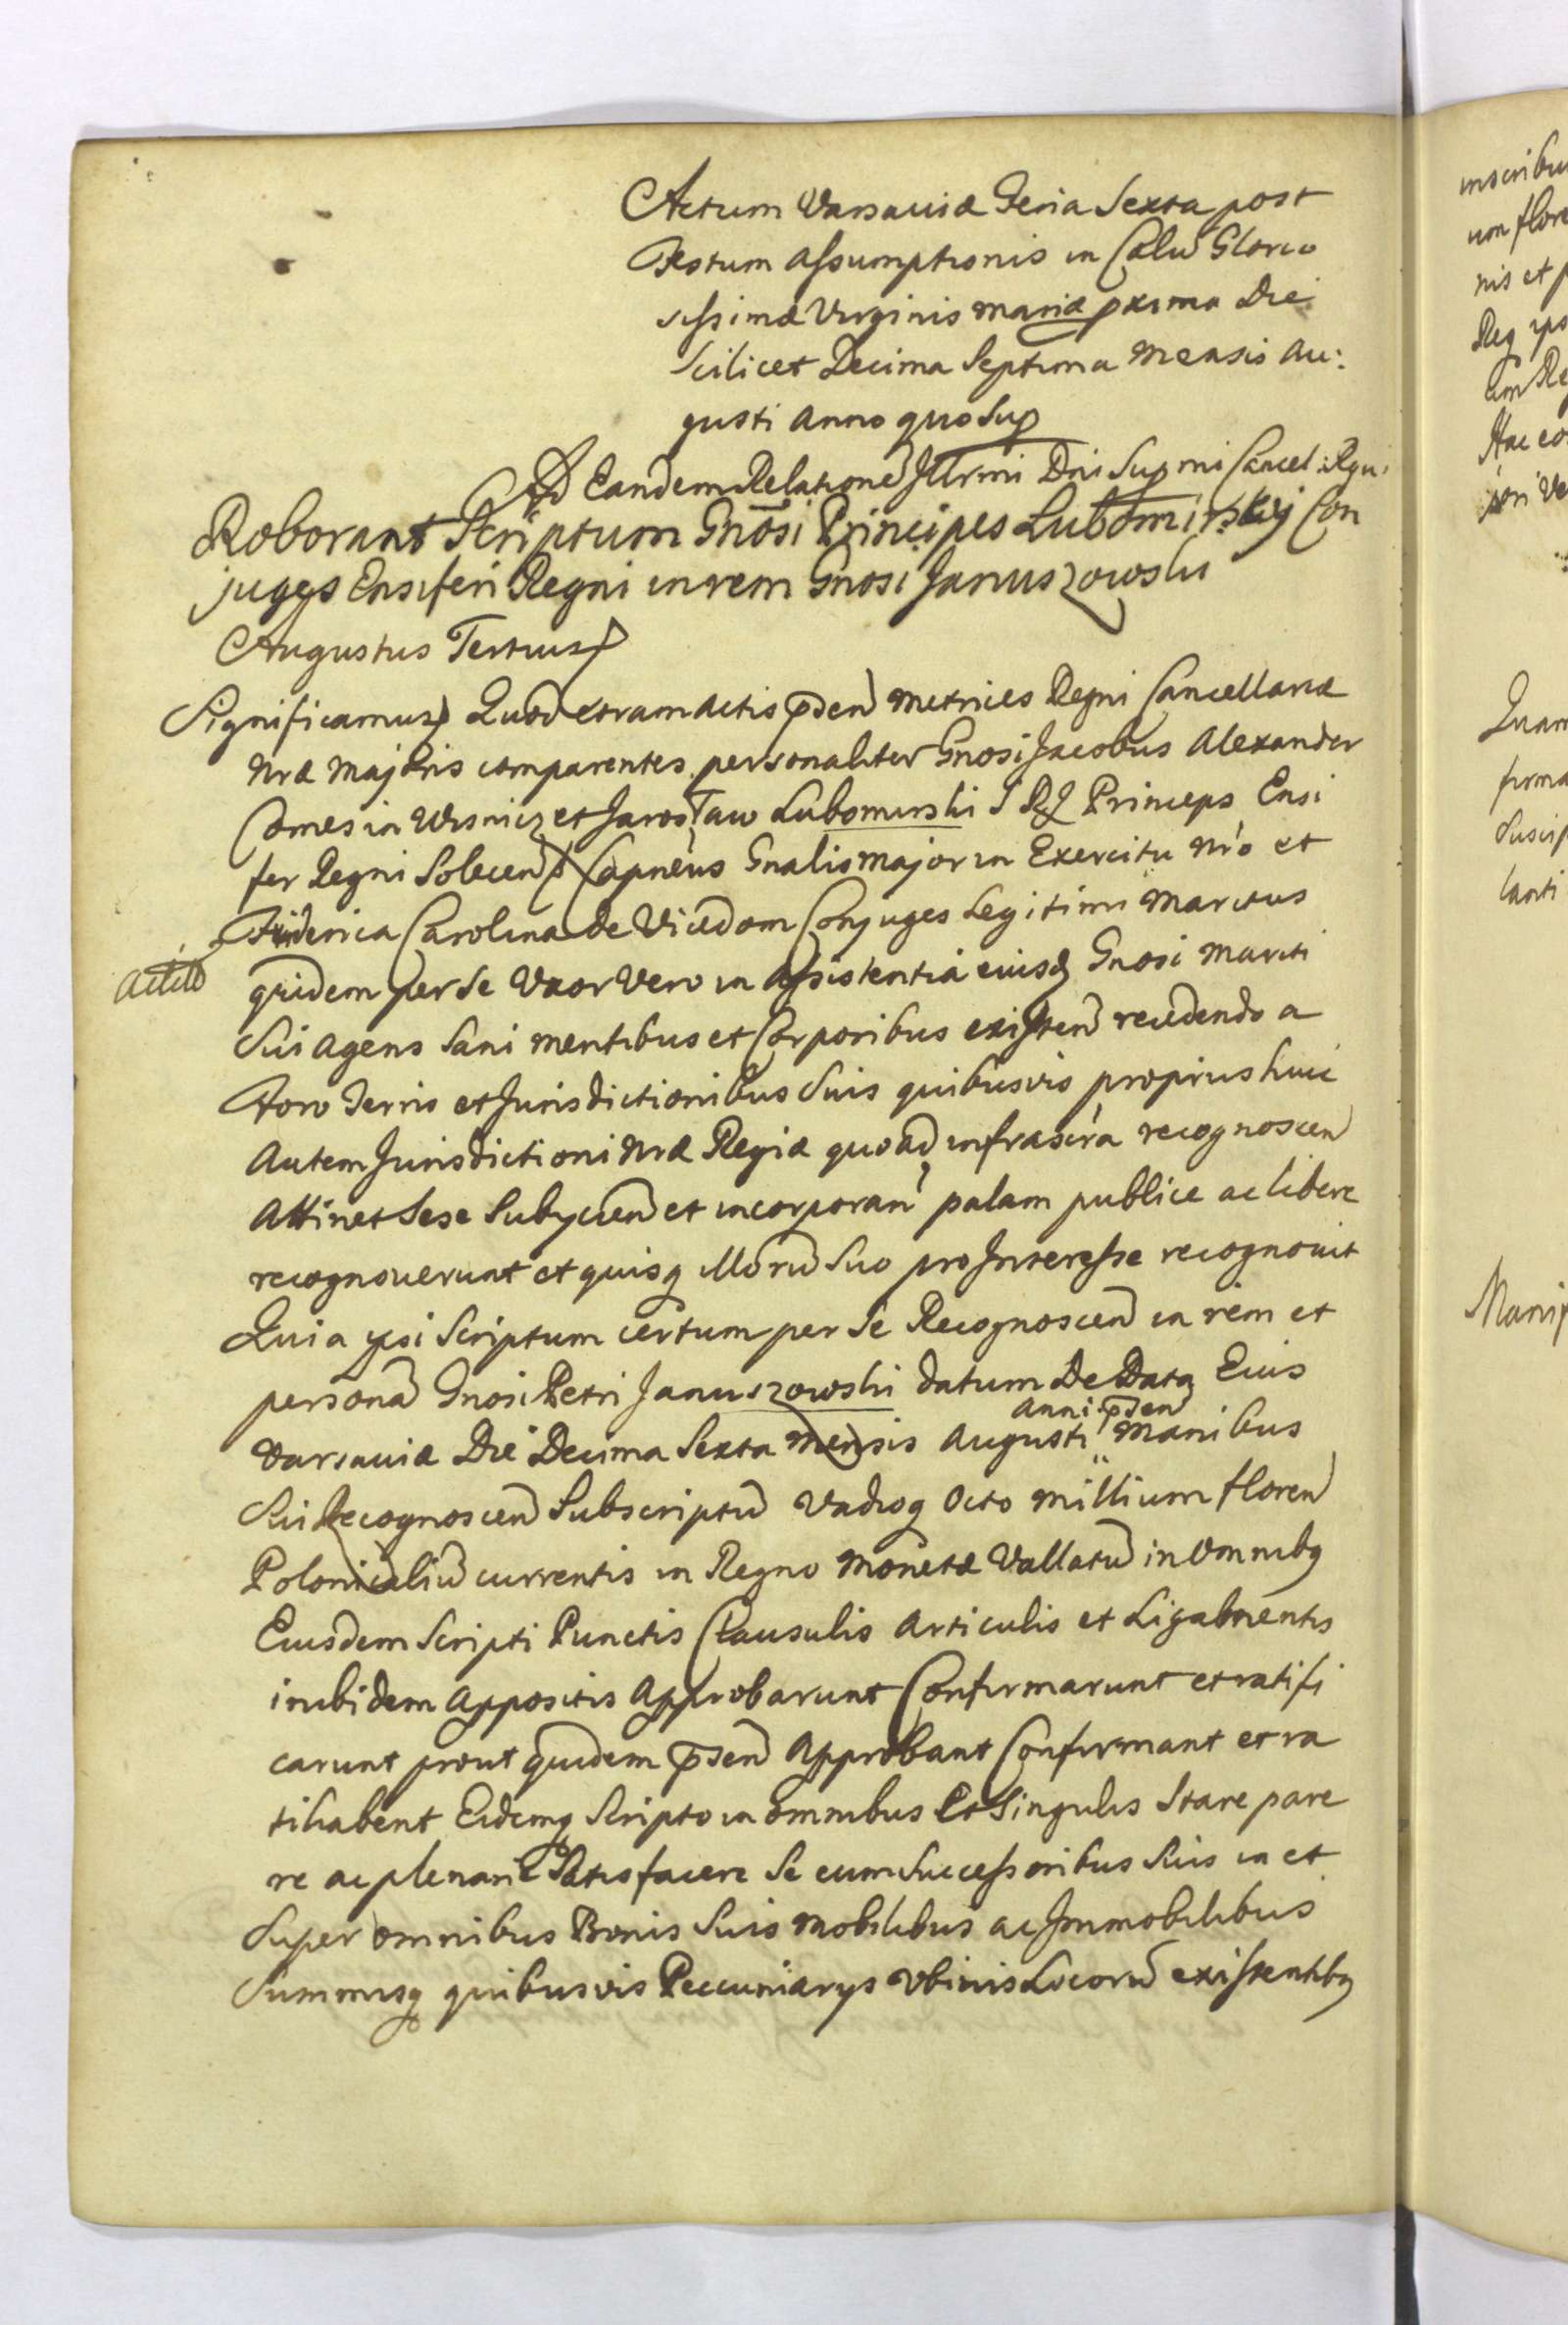 Actum Varsaviæ Feria Sexta post
Festum Assumptionis in Cælū Glorio
sissimæ Virginis Mariæ pxima Die
Scilicet Decima Septima Mensis Au:
gusti Anno quo Sup
Ad Eandem Relationē Illrmi Dni Supmi Cancel: Rgni
Roborant Scriptum Gnosi Principes Lubomirskij Con
juges Ensiferi Regni in rem Gnosi Januszowski
Augustus Tertius
Significamus Quod coram Actis pđen Metrices Regni Cancellariæ
Nræ Majoris comparentes personaliter Gnosi Jacobus Alexander
Comes in Wisnicz et Jarosław Lubomirski S R J Princeps Ensi
fer Regni Solecen Capneus Gnalis major in Exercitu Nr̃o et
Friderica Carolina de Vicedom Conjuges Legitimi Maritus
quidem per se Uxor Vero in Assistentia eiusđ Gnosi Mariti
Sui Agens Sani mentibus et Corporibus existen recedendo a
Foro Terris et Jurisdictionibus Suis quibusvis propriis huic
Autem Jurisdictioni Nræ Regiæ quoad infrascr̃a recognoscen
Attinet Sese Subycien et incorporan palam publice ac libere
recognoverunt et quisq illorū Suo pro Interesse recognovit
Quia ipsi Scriptum certum per Se Recognoscen in rem et
personā Gnosi Petri Januszowski datum De Data Eius
Anni pđen
Varsaviæ Die Decima Sexta Mensis Augusti Manibus
Sui Recognoscen Subscriptū Vadioq Octo Millium floren
Polonicaliū currentis in Regno Monetæ Vallatū in Omnibq
Eiusdem Scripti Punctis Clausulis Articulis et Ligamentis
inibidem Appositis Approbarunt Confirmarunt et ratifi
carunt prout quidem pđen Approbant Confirmant et ra
tihabent Eidemq Scripto in omnibus Et Singulis Stare pare
re ac plenarie Satisfacere Se cum Successoribus Suis in et
Super omnibus Bonis Suis Mobilibus ac Immobilibus
Summisq quibusvis Peccuniarys Ubivis Locorū existentibq